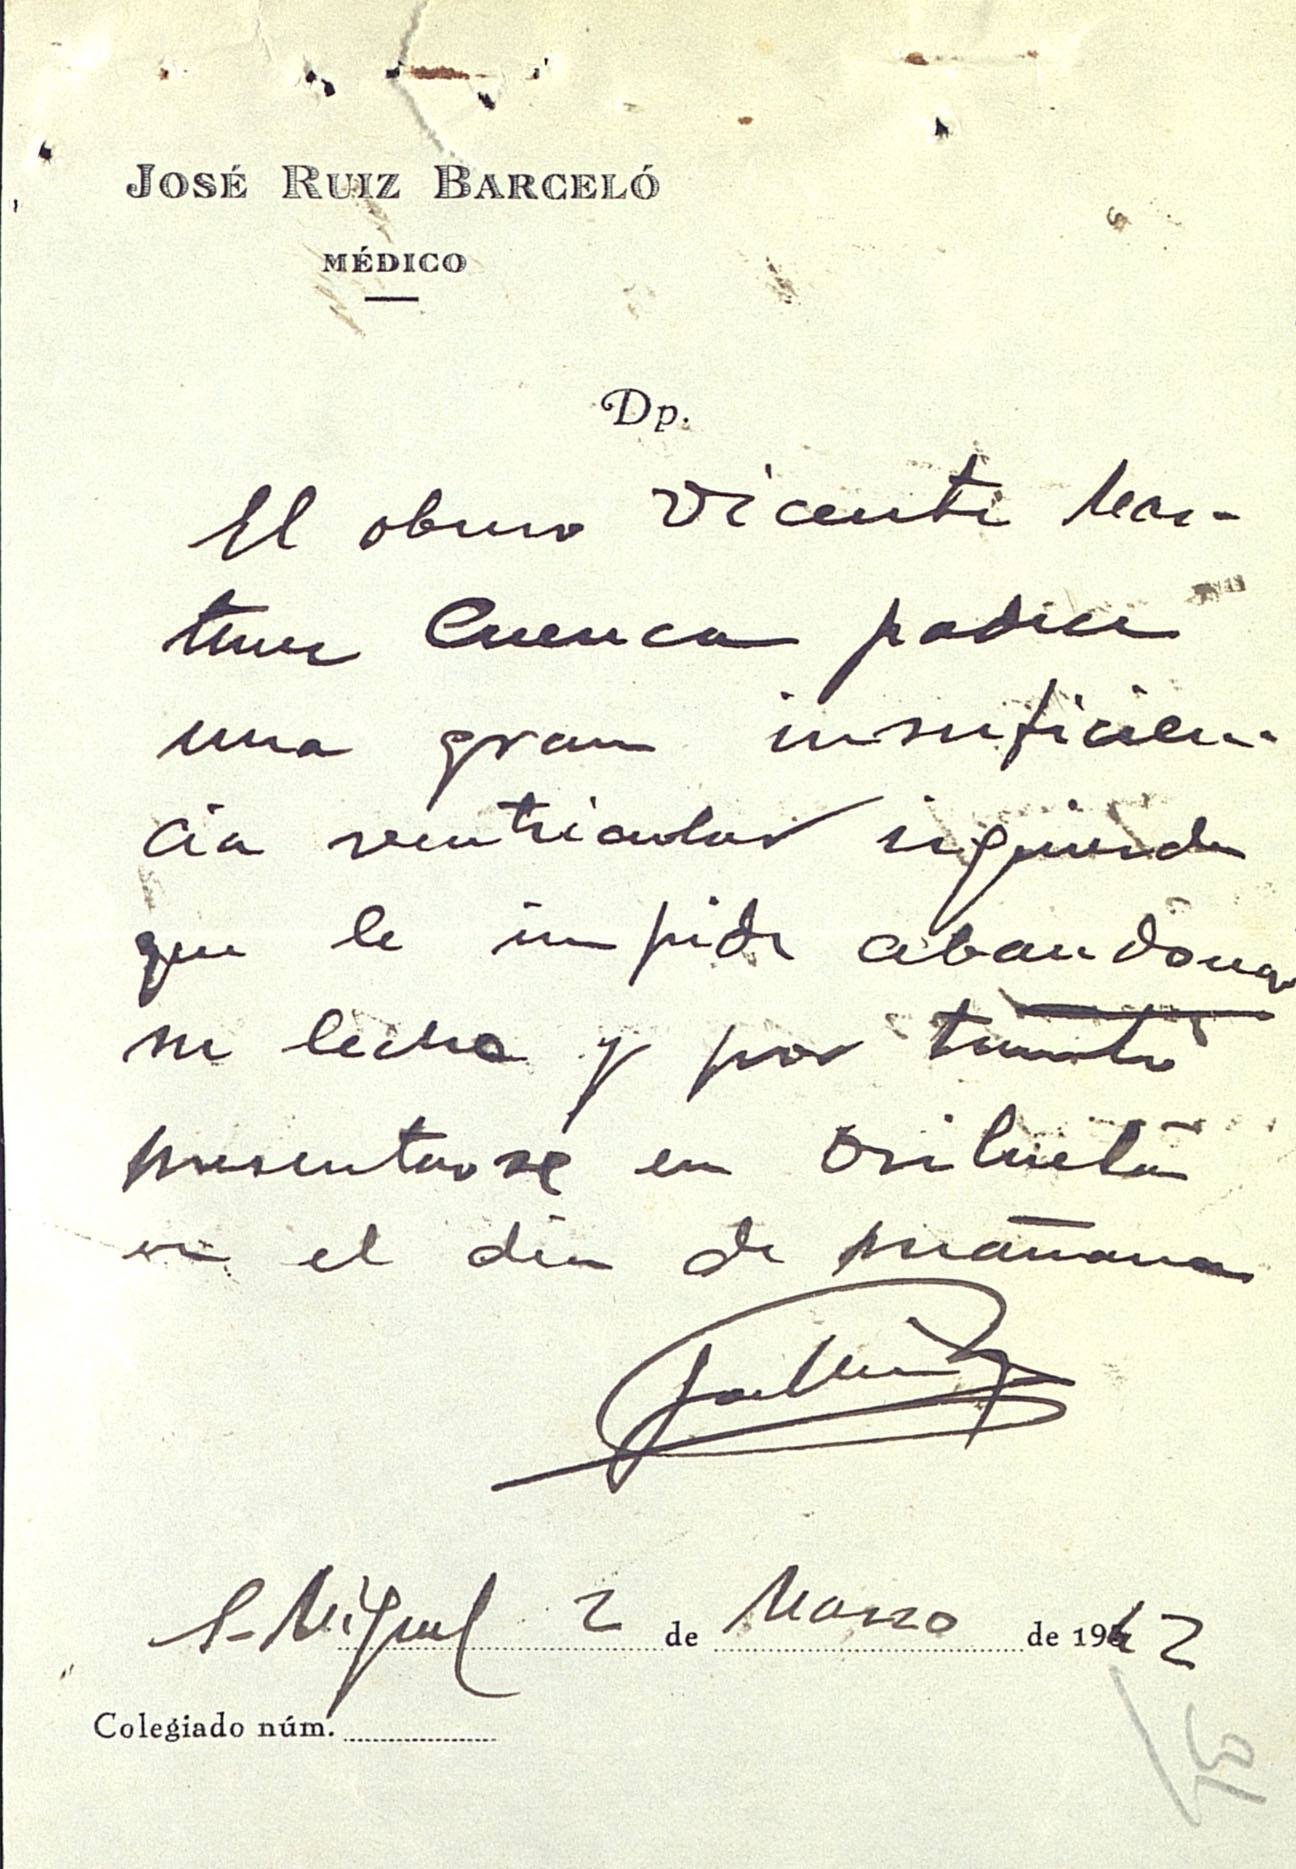 JOSÉ RUIZ BARCELÓ
MÉDICO
Dp.
El obrero Vicente Mar-
tinez Cuenca padece
una gran insuficien-
cia ventricular izquierda
que le impide abandonar
su lecho y por tanto
presentarse en Orihuela
en el día de mañana
José Ruiz
S. Miguel 2 de Marzo de 1942
Colegiado núm.